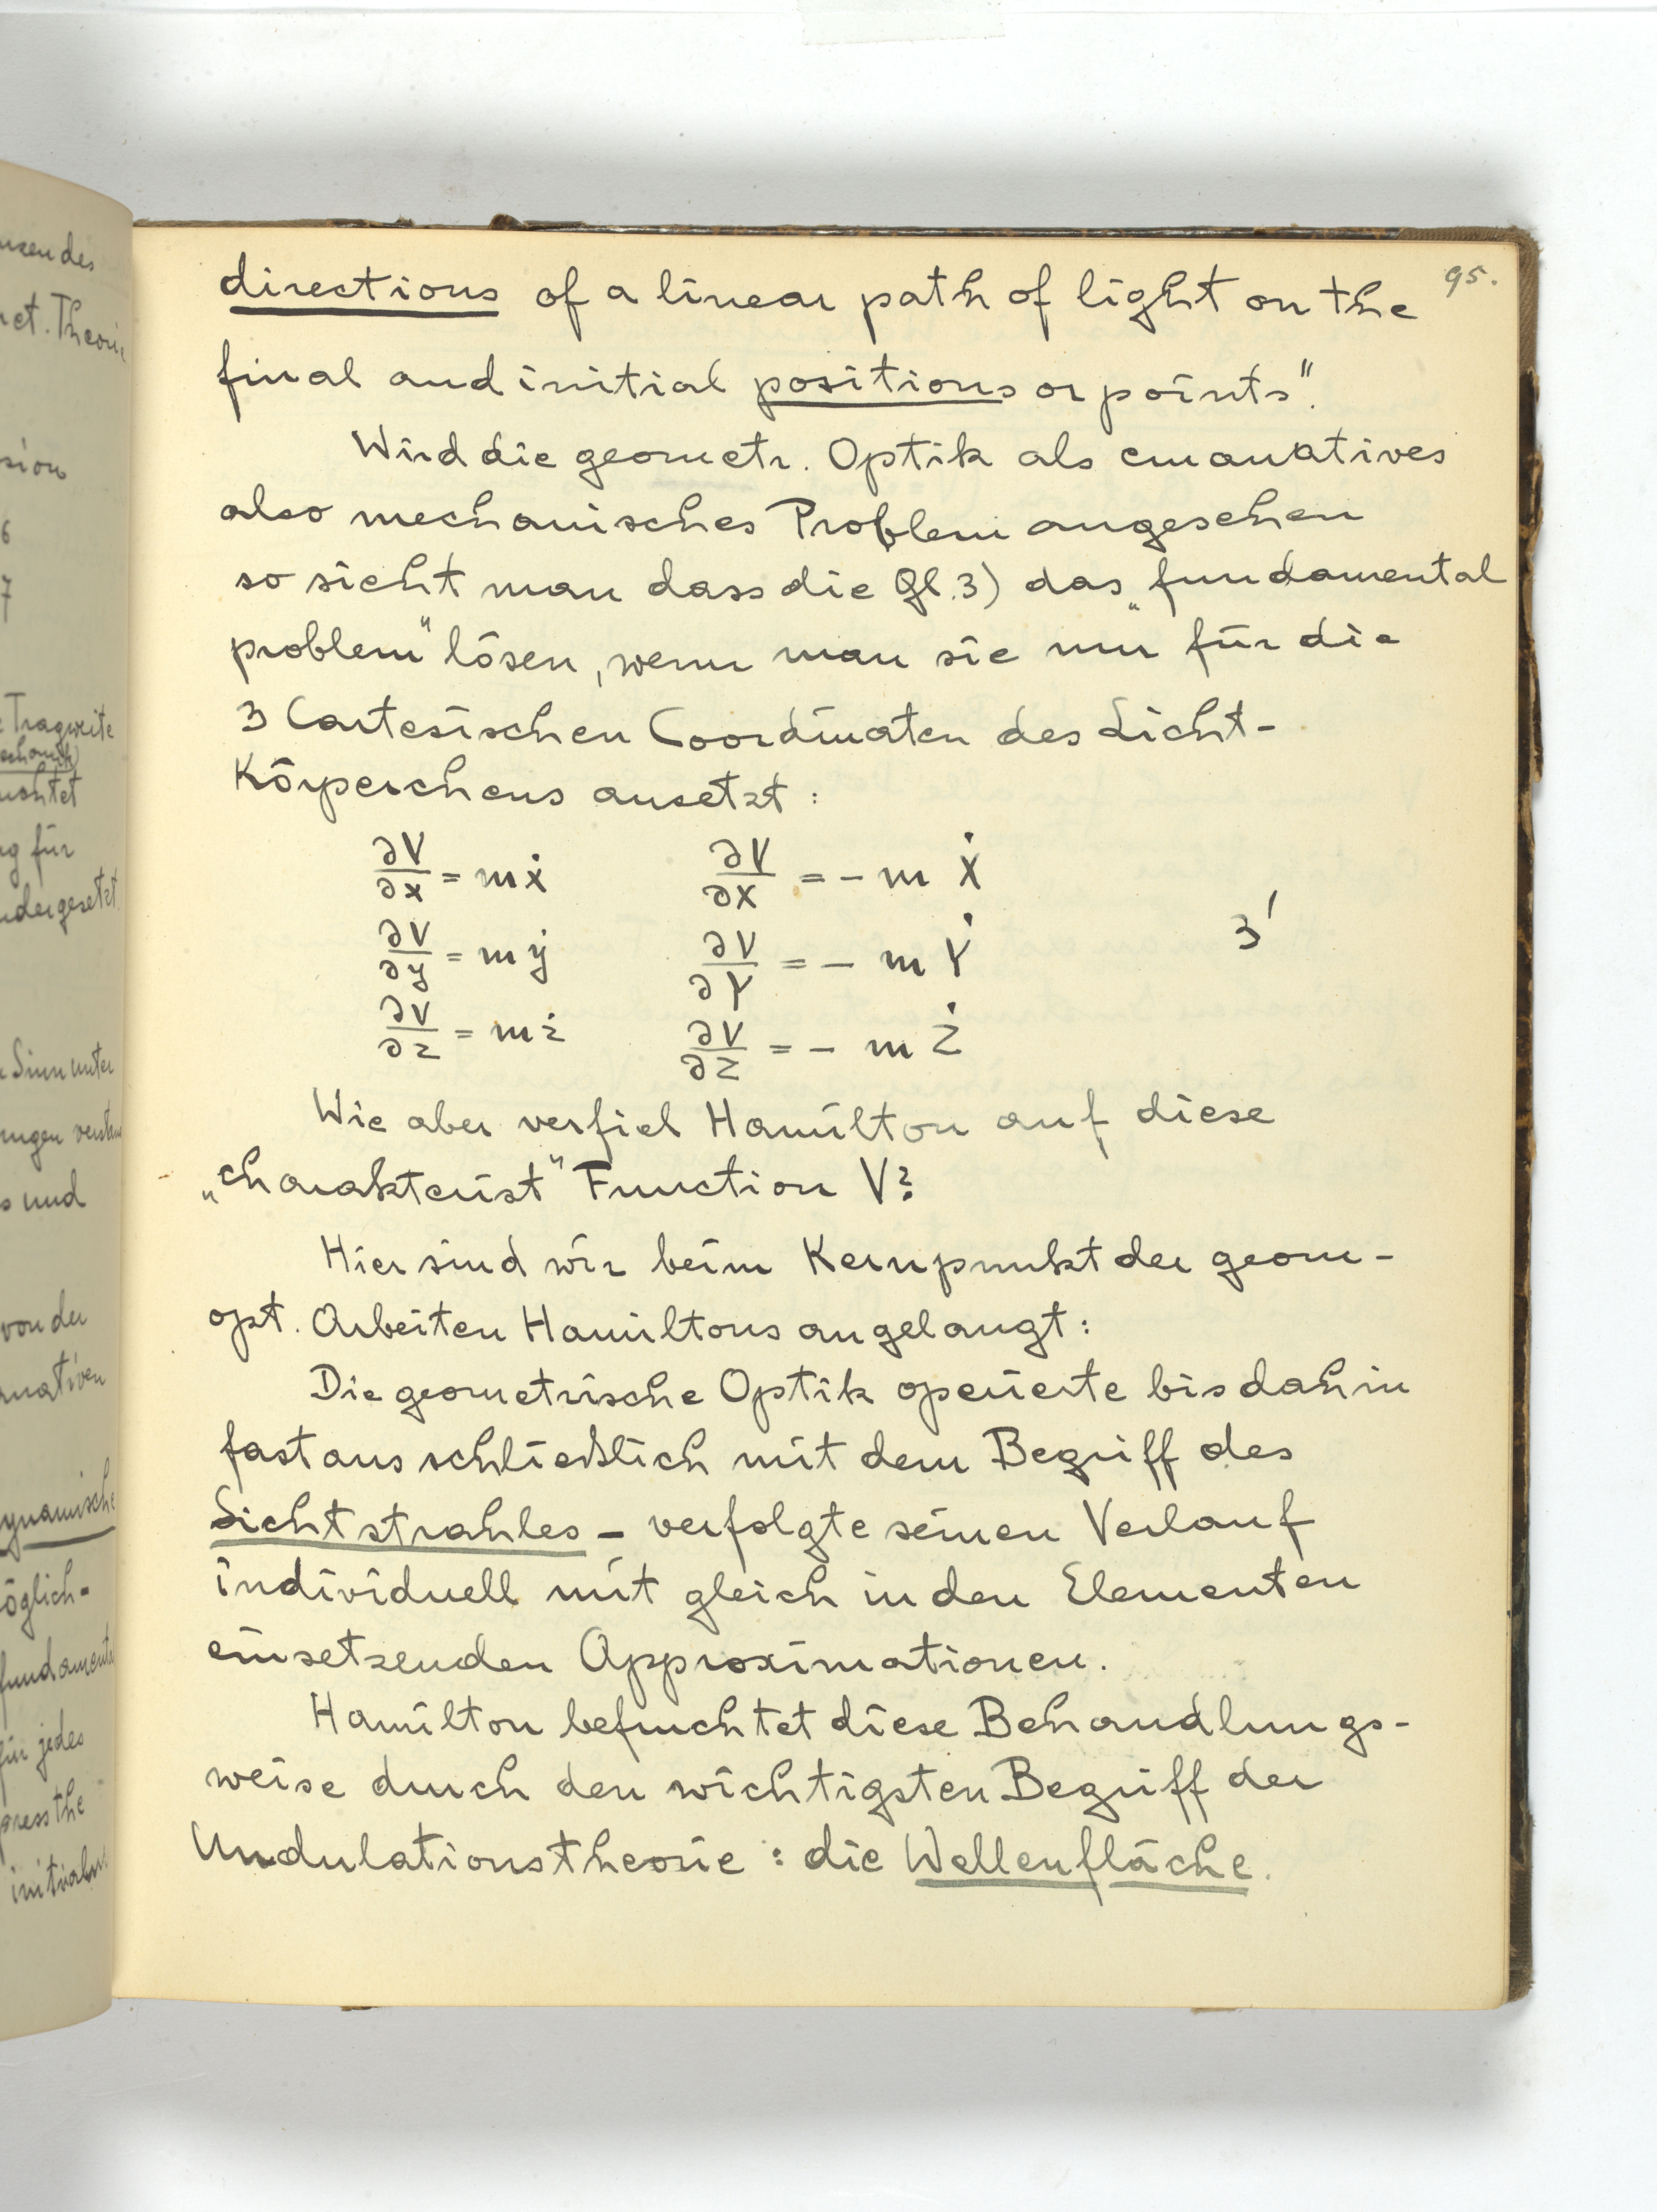 usen des
ret. Theorie
sion
6
7
Tragweite
echanik)
uchtet
ng für
ndergesetzt
Sinn unter
ungen
s und
von der
mativen
ynamische
öglich-
fundamenta
für jedes
press the
initial
95.
directions of a linear path of light on the
final and initial positions or points".
Wird die geometr. Optik als emanatives
also mechanisches Problem angesehen
so sieht man dass die Gl. 3) das „fundamental
problem" lösen, wenn man sie nur für die
3 Cartesischen Coordinaten des Licht-
Körperchens ansetzt :
∂V/∂x = mẋ ∂V/∂X = - m Ẋ
∂V/∂y = mẏ ∂V/∂Y = - m Ẏ 3'
∂V/∂z = mż ∂V/∂Z = - m Ż
Wie aber verfiel Hamilton auf diese
„charakterist" Function V?
Hier sind wir beim Kernpunkt der geom-
opt. Arbeiten Hamiltons angelangt :
Die geometrische Optik operierte bis dahin
fast ausschließlich mit dem Begriff des
Lichtstrahles - verfolgte seinen Verlauf
individuell mit gleich in den Elementen
einsetzenden Approximationen.
Hamilton befruchtet diese Behandlungs-
weise durch den wichtigsten Begriff der
Undulationstheorie : die Wellenfläche.